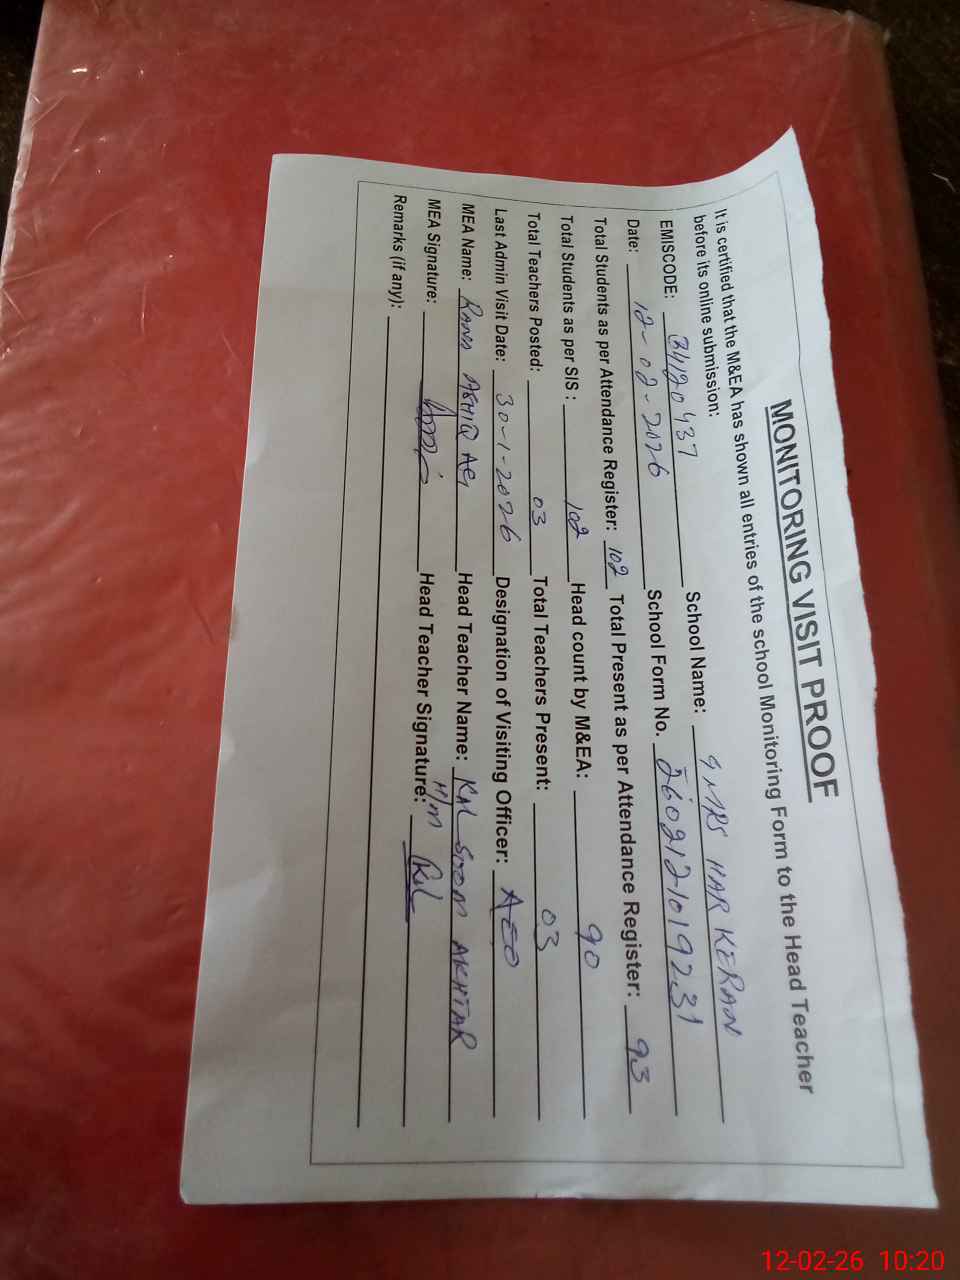 MONITORING VISIT PROOF
It is certified that the M&EA has shown all entries of the school Monitoring Form to the Head Teacher
before its online submission:
EMISCODE: 34120437 School Name: GMPS HAR KERAN
Date: 12-02-2026 School Form No. 2602121019231
Total Students as per Attendance Register: 102 Total Present as per Attendance Register: 93
Total Students as per SIS : 102 Head count by M&EA: 90
Total Teachers Posted: 03 Total Teachers Present: 03
Last Admin Visit Date: 30-1-2026 Designation of Visiting Officer: AEO
MEA Name: RANA ASHIQ ALI Head Teacher Name: KALSOOM AKHTAR
MEA Signature: Head Teacher Signature: H/M
Remarks (if any):
12-02-26 10:20